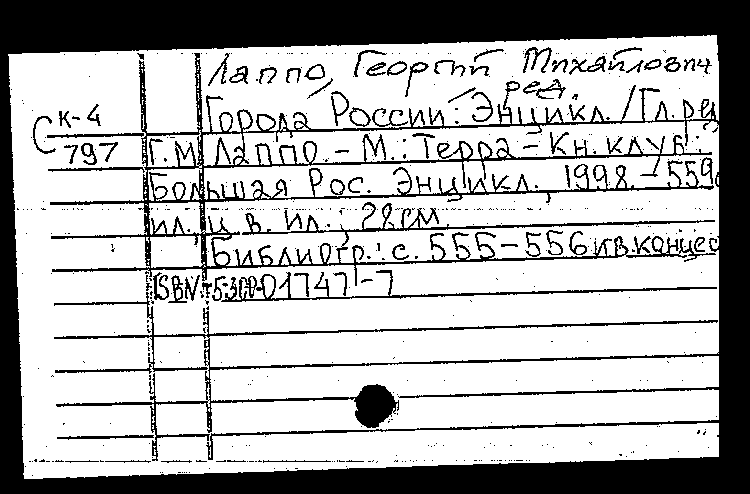 Лаппо, Георгий Михайлович
ред.
Города России: Энцикл. / Гл. ред
С к-4
797 Г.М. Лаппо. – М.: Терра – Кн. клуб:
Большая Рос. Энцикл., 1998. – 559с
ил., цв. ил.; 28см
Библиогр.: с. 555–556 и в конце с
ISBN 5-300-01747-7